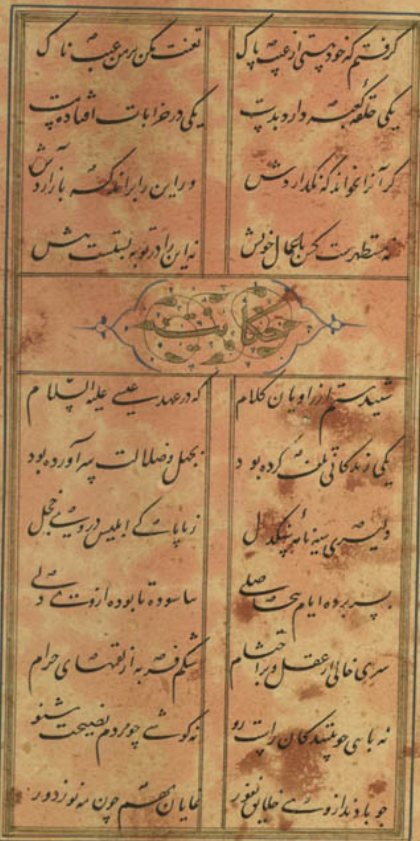 گرفتم که خود هستی از عیب پاک تعنت مکن بر من عیب ناک
یکی حلقه کعبه دارد بدست یکی در خرابات افتاده مست
گر آنرا بخواند که نگذاردش ور این را براند که باز آردش
نه مستظهرست آن باعمال خویش نه این را در توبه بستست پیش
حکایت
شنیدستم از راویان کلام که در عهد عیسی علیه السلام
یکی زندگانی تلف کرده بود بجهل و ضلالت سر آورده بود
دلیری سیه نامه سنگدل ز ناپاکی ابلیس در وی خجل
بسر برده ایام بیحاصلی نیاسوده تا بوده از وی دلی
سری خالی از عقل و پر احتشام شکم فربه از لقمهای حرام
نه پایی چو بینندگان راست رو نه گوشی چو مردم نصیحت شنو
چو باد بد از وی خلایق نفور نمایان بهم چون مه نو ز دور